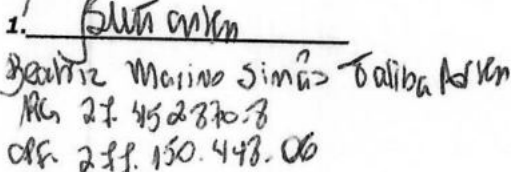 1.
Beatriz Marino Simão Taliba Arsen
RG 27.452870-8
CPF. 277.150.448.06